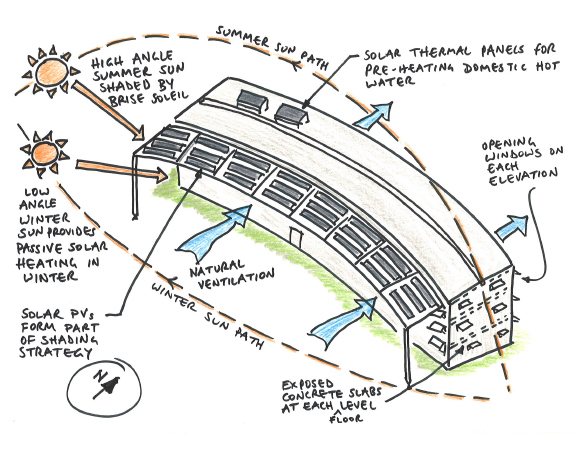 SUMMER SUN PATH
HIGH ANGLE
SUMMER SUN
SHADED BY
BRISE SOLEIL
SOLAR THERMAL PANELS FOR
PRE-HEATING DOMESTIC HOT
WATER
OPENING
WINDOWS ON
EACH
ELEVATION
LOW
ANGLE
WINTER
SUN PROVIDES
PASSIVE SOLAR
HEATING IN
WINTER
NATURAL
VENTILATION
WINTER SUN PATH
SOLAR PVs
FORM PART
OF SHADING
STRATEGY
N
EXPOSED
CONCRETE SLABS
AT EACH LEVEL
FLOOR